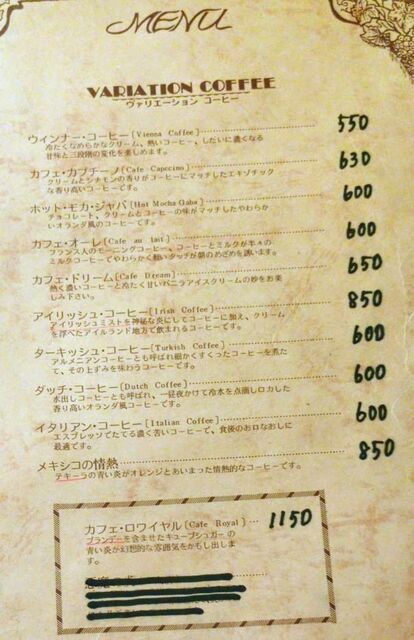 MENU
VARIATION COFFEE
ヴァリエーション コーヒー
ウィンナー・コーヒー(Vienna Coffee) 550
冷たくなめらかなクリーム、熱いコーヒー、しだいに濃くなる
甘味と三段階の変化を楽しめます。
カフェ・カプチーノ(Cafe Capccino) 630
クリームとシナモンの香りがコーヒーにマッチしたエキゾチック
な香り高いコーヒーです。
ホット・モカ・ジャバ(Hot Mocha Gaba) 600
チョコレート、クリームとコーヒーの味がマッチしたやわらか
いオランダ風のコーヒーです。
カフェ・オーレ(Cafe au lait) 600
フランス人のモーニングコーヒー、コーヒーとミルクが半々の
ミルクコーヒーでやわらかく軽いタッチが朝のめざめを誘います。
カフェ・ドリーム(Cafe Dream) 650
熱く濃いコーヒーと冷たく甘いバニラアイスクリームの妙をお楽
しみ下さい。
アイリッシュ・コーヒー(Irish Coffee) 850
アイリッシュミストを神秘な炎にしてコーヒーに加え、クリーム
を浮べたアイルランド地方で飲まれるコーヒーです。
ターキッシュ・コーヒー(Turkish Coffee) 600
アルメニアンコーヒーとも呼ばれ細かくすくったコーヒーを煮た
て、その上ずみを味わうコーヒーです。
ダッチ・コーヒー(Dutch Coffee) 600
水出しコーヒーとも呼ばれ、一昼夜かけて冷水を点滴しロカした
香り高いオランダ風コーヒーです。
イタリアン・コーヒー(Italian Coffee) 600
エスプレッソでたてる濃く苦いコーヒーで、食後のお口なおしに
最適です。
メキシコの情熱 850
テキーラの青い炎がオレンジとあいまった情熱的なコーヒーです。
カフェ・ロワイヤル(Cafe Royal)… 1150
ブランデーを含ませたキューブシュガーの
青い炎が幻想的な雰囲気をかもし出しま
す。